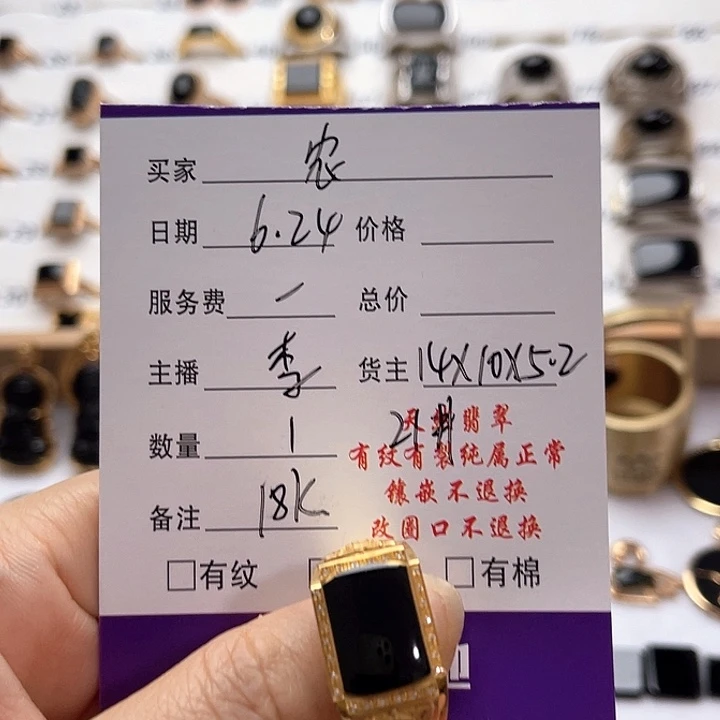 买家 农
日期 6.24 价格
服务费 / 总价
主播 李 货主 14X10X5.2
数量 1 21#
天然翡翠
有纹有裂纯属正常
备注 18K 镶嵌不退换
改圈口不退换
有纹 有棉